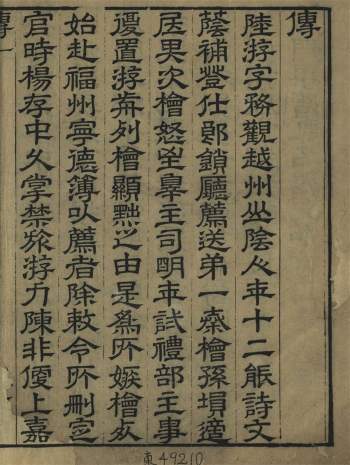 傳
陸游字務觀越州山陰人年十二能詩文
蔭補登仕郎鎖廳薦送弟一秦檜孫塤適
居其次檜怒至辠主司明年試禮部主事
復置游歬列檜顯黜之由是為所嫉檜死
始赴福州寧德簿以薦者除敕令所刪定
官時楊存中久掌禁旅游力陳非便上嘉
傳一
東49210